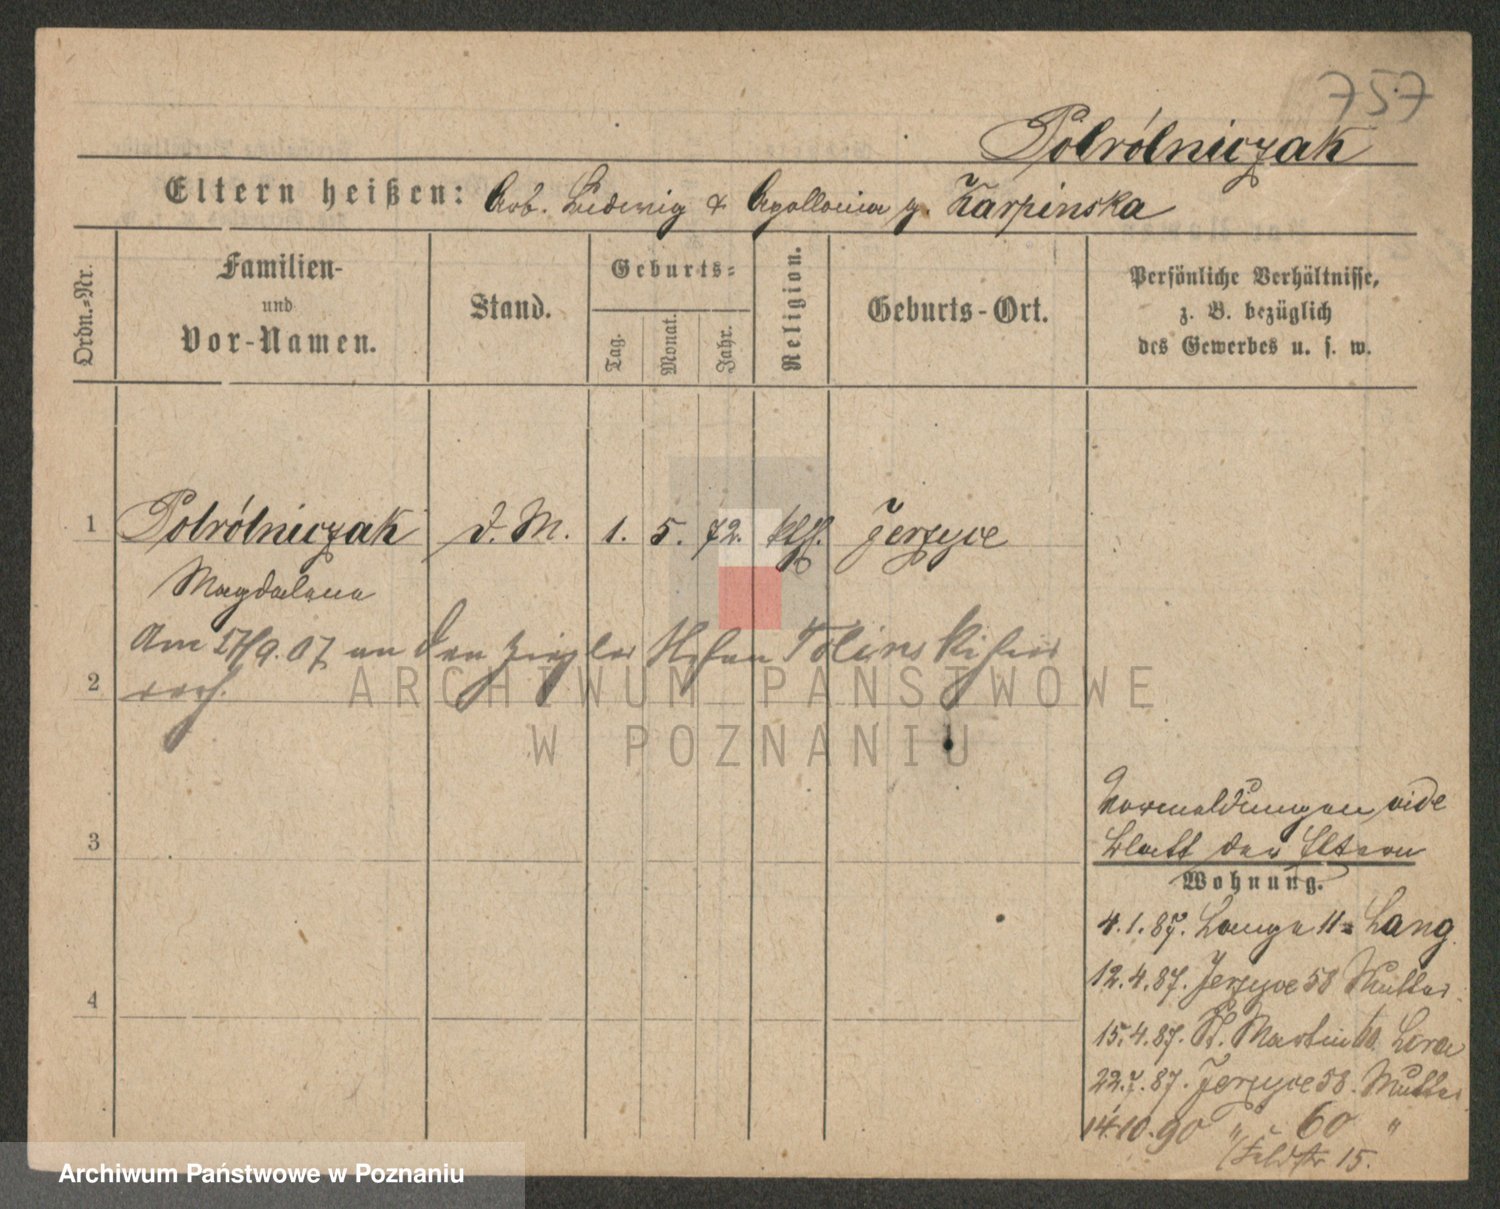 757
Pólrólniczak
Eltern heißen: Arb. Ludwig & Apollonia g. Karpinska
Ordn.-Nr.
Familien-
und
Vor-Namen.
Stand.
Geburts-
Tag.
Monat.
Jahr.
Religion.
Geburts-Ort.
Persönliche Verhältnisse,
z. B. bezüglich
des Gewerbes u. s. w.
1 Polrólniczak d. M. 1. 5. 72. kth. Jerzyce
Magdalena
Am 17/9.07 an den Ziegler Stefan Tolinski
2
ARCHIWUM PAŃSTWOWE
W POZNANIU
3
4
Vormeldungen vide
Blatt der Eltern
Wohnung.
4.1.87. Lange 11 Lang
12.4.87. Jerzyce 58 Mutter
15.4.87. St. Martin
22.7.87. Jerzyce 58. Mutter
14.10.90 " 60 "
Feldstr 15.
Archiwum Państwowe w Poznaniu